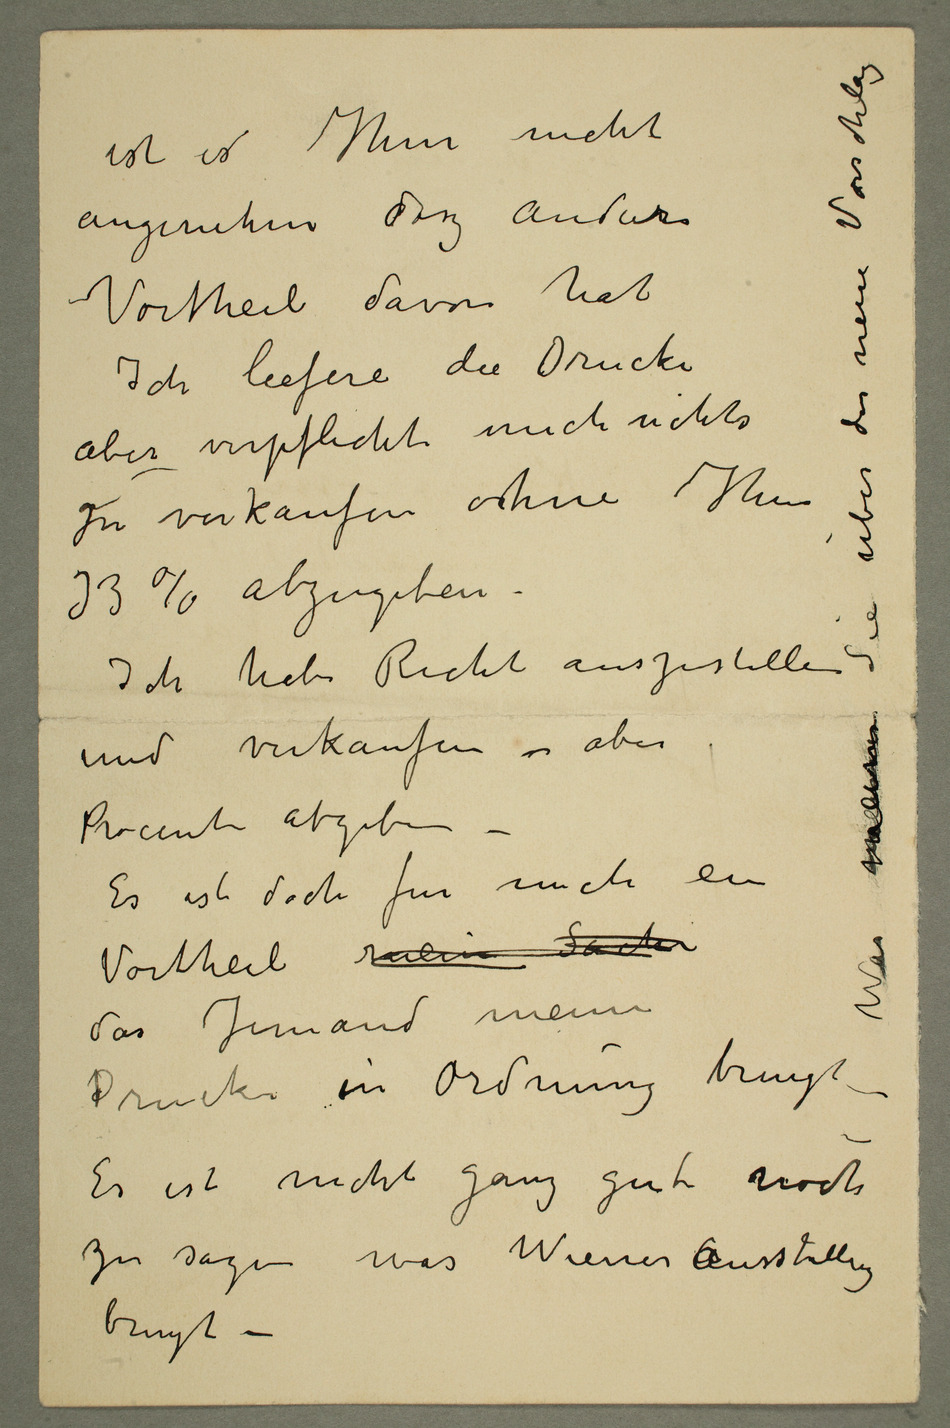 ist es Ihnen nicht
angenehm dasz andere
Vortheil davon hat
Ich liefere die Drucke
aber verpflichte mich nichts
zu verkaufen ohne Ihnen
33 % abzugeben –
Ich habe Recht auszustellen
und verkaufen – aber
Procente abgeben –
Es ist doch fur mich ein
Vortheil mein Sache
das Jemand meine
Drucke in Ordnung bringt –
Es ist nicht ganz gut noch
zu sagen was Wiener ausstellung
bringt –
Was Sie über der neue Vorschlag